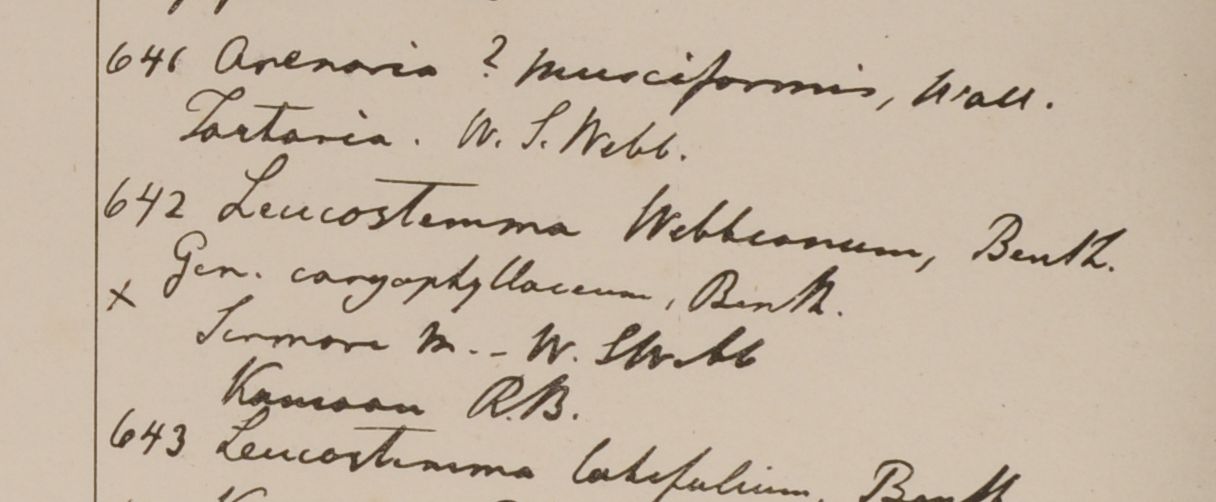 641 Arenaria ? musciformis, Wall.
Tartaria. W. S. Webb.
642 Leucostemma Webbianum, Benth.
Gen. caryophyllaceum, Benth.
x
Sirmore M. - W. S Webb
Kamaon R.B.
643 Leucostemma latifolium, Benth